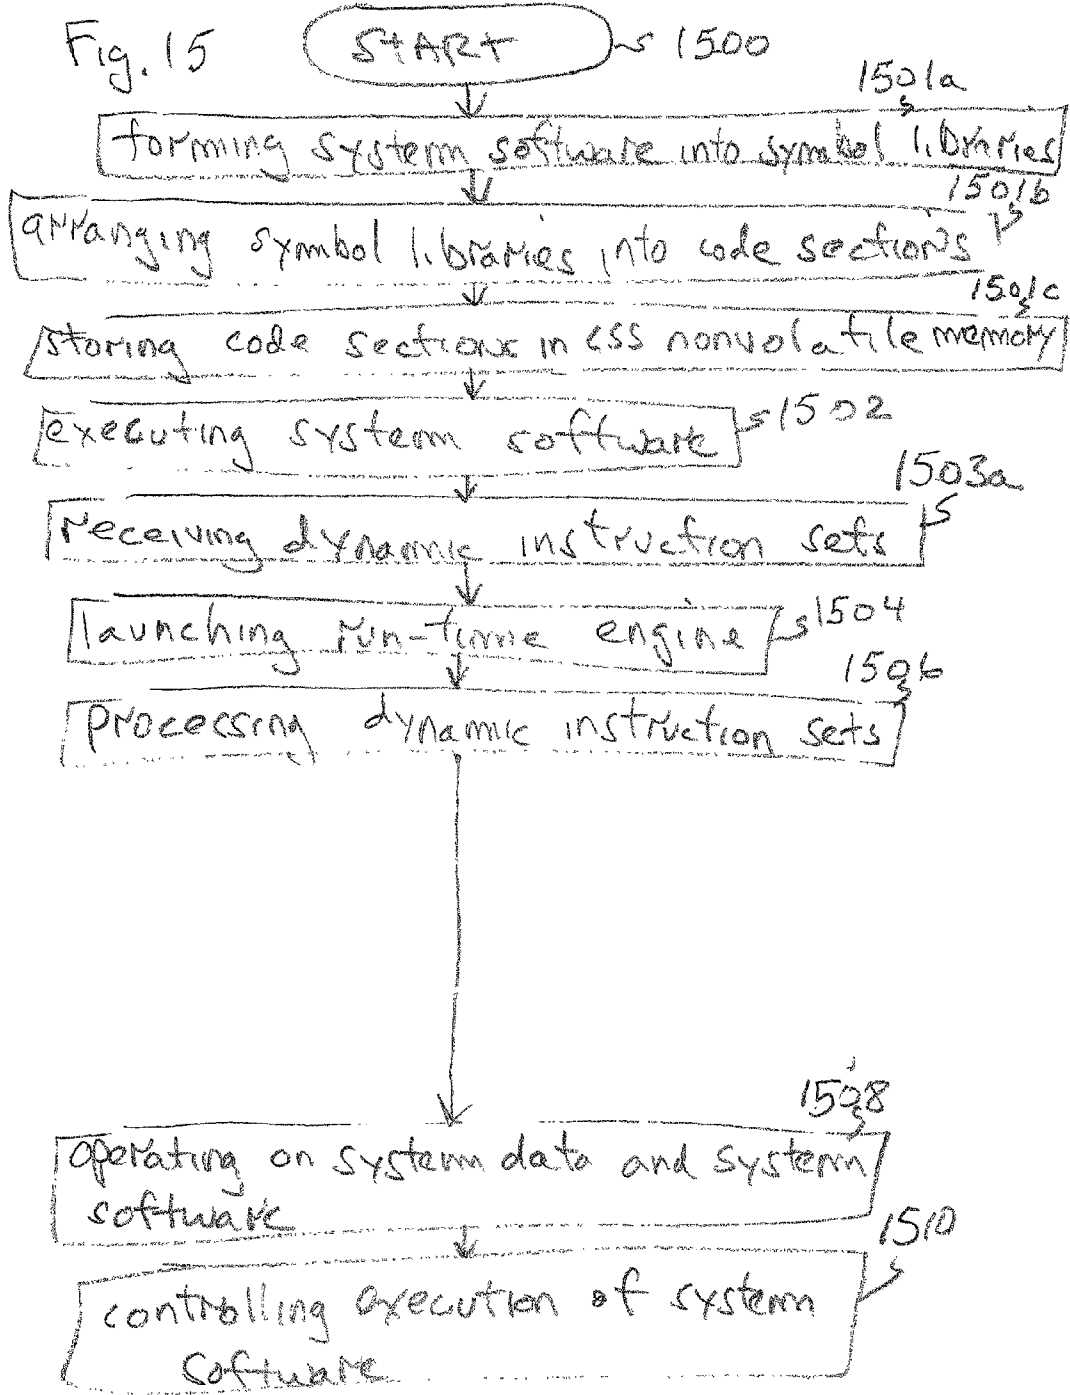 Fig. 15 START 1500
1501a
forming system software into symbol libraries
1501b
arranging symbol libraries into code sections
1501c
storing code sections in CSS nonvolatile memory
executing system software 1502
1503a
receiving dynamic instruction sets
launching run-time engine 1504
1506
processing dynamic instruction sets
1508
operating on system data and system
software
1510
controlling execution of system
software